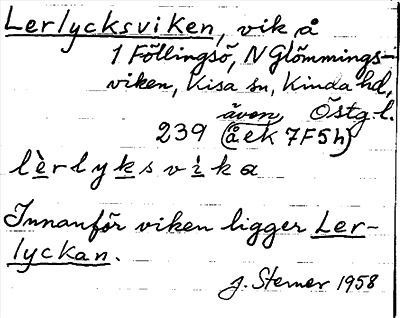 Lerlycksviken, vik å
1 Föllingsö, N Glömmings-
viken, Kisa sn, Kinda hd,
även Östg.l.
239 (åek 7F5h)
lèrlyksvika
Innanför viken ligger Ler-
lyckan.
J. Sterner 1958